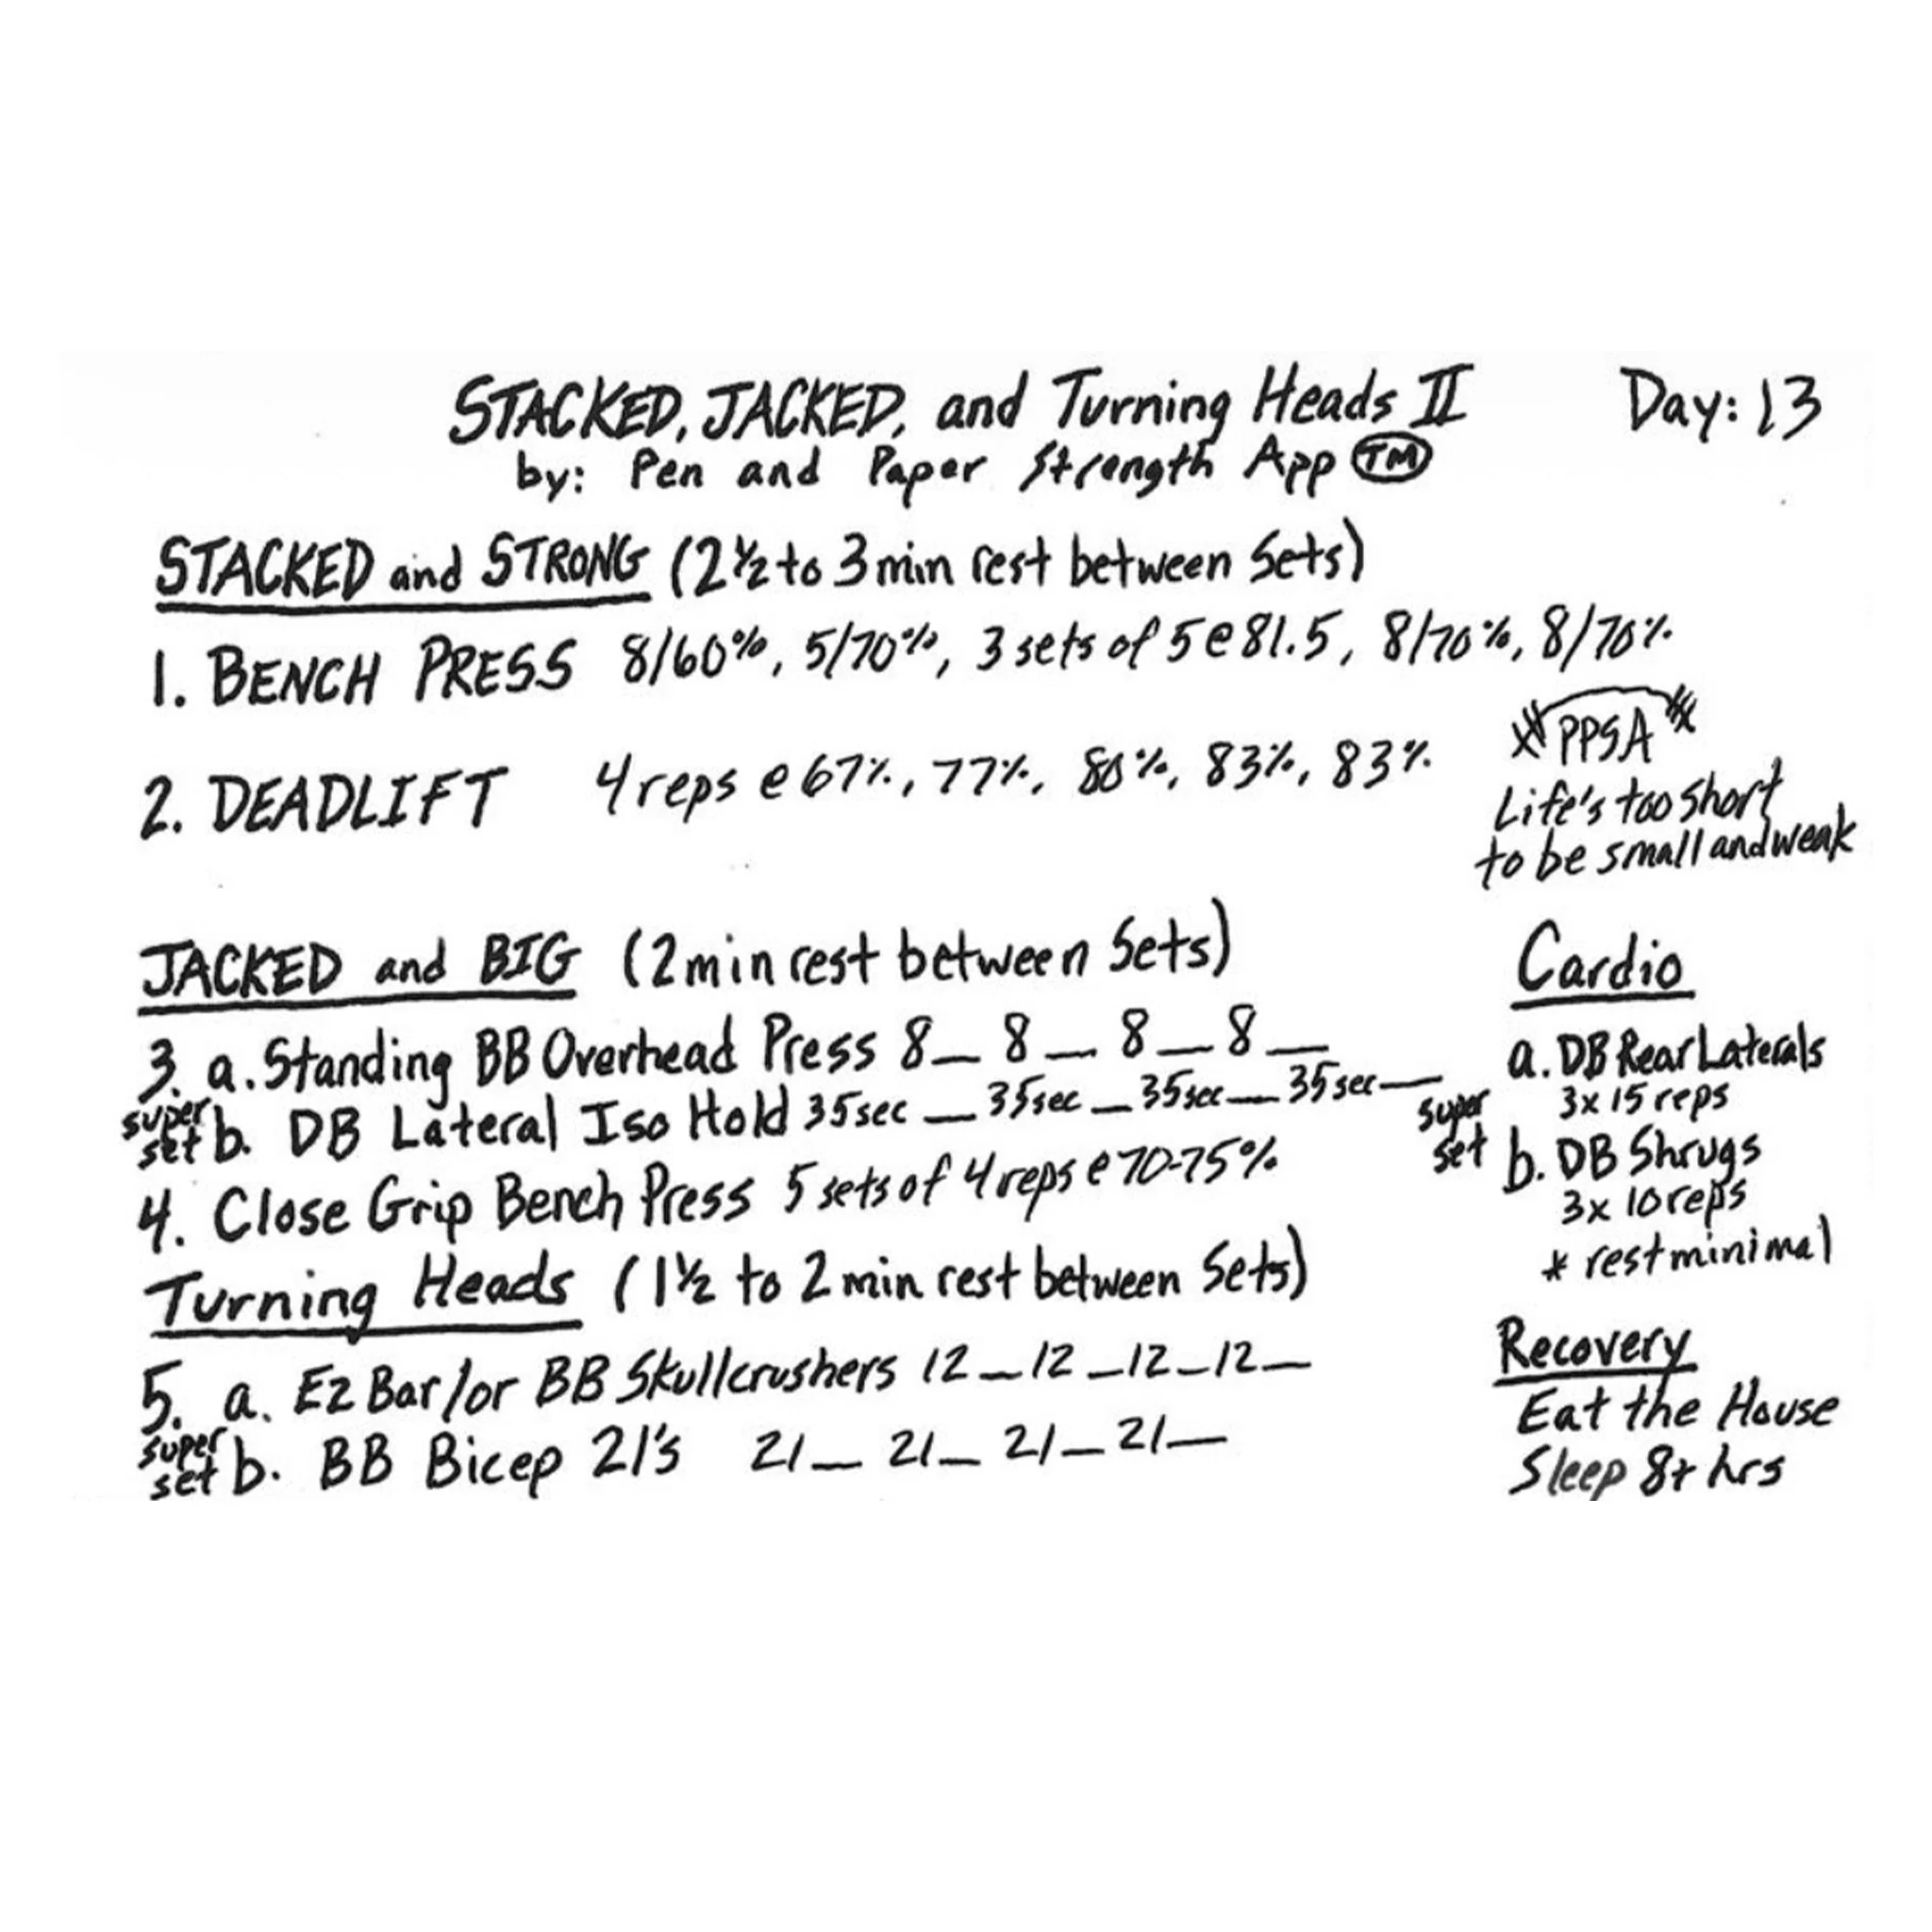 STACKED, JACKED, and Turning Heads II
Day: 13
by: Pen and Paper Strength App TM
STACKED and STRONG (2½ to 3 min rest between Sets)
1. BENCH PRESS 8/60%, 5/70%, 3 sets of 5 @ 81.5, 8/70%, 8/70%
2. DEADLIFT 4 reps @ 67%, 77%, 80%, 83%, 83%
PPSA
Life's too short
to be small and weak
JACKED and BIG (2 min rest between Sets)
3. a. Standing BB Overhead Press 8_ 8_ 8_ 8_
super set b. DB Lateral Iso Hold 35sec _ 35sec _ 35sec _ 35sec _
4. Close Grip Bench Press 5 sets of 4 reps @ 70-75%
Turning Heads (1½ to 2 min rest between Sets)
5. a. EZ Bar/or BB Skullcrushers 12_ 12_ 12_ 12_
super set b. BB Bicep 21's 21_ 21_ 21_ 21_
Cardio
a. DB Rear Laterals
3x 15 reps
super set b. DB Shrugs
3x 10 reps
* rest minimal
Recovery
Eat the House
Sleep 8+ hrs